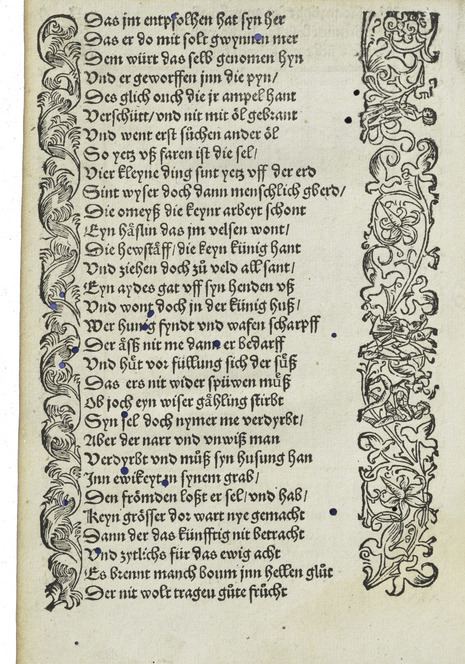 Das jm entpfolhen hat syn her
Das er do mit solt gwynnen mer
Dem würt das selb genomen hyn
Vnd er geworffen jnn die pyn/
Des glich ouch die jr ampel hant
Verschütt/ vnd nit mit öl gebrant
Vnd went erst süchen ander öl
So yetz vß faren ist die sel/
Vier kleyne ding sint yetz vff der erd
Sint wyser doch dann menschlich gberd/
Die omeyß die keynr arbeyt schont
Eyn häßlin das jm velsen wont/
Die hewstäff/ die keyn künig hant
Vnd ziehen doch zů veld all sant/
Eyn aydes gat vff syn henden vß
Vnd wont doch jn der künig huß/
Wer hunig fyndt vnd wafen scharpff
Der äß nit me dann er bedarff
Vnd hůt vor füllung sich der sůß
Das ers nit wider spüwen můß
Ob joch eyn wiser gähling stirbt
Syn sel doch nymer me verdyrbt/
Aber der narr vnd vnwiß man
Verdyrbt vnd můß syn husung han
Jnn ewikeyt jn synem grab/
Den frömden loßt er sel/ vnd hab/
Keyn grösser dor wart nye gemacht
Dann der das künfftig nit betracht
Vnd zytlichs für das ewig acht
Es brennt manch boum jnn hellen glůt
Der nit wolt tragen gůte frücht